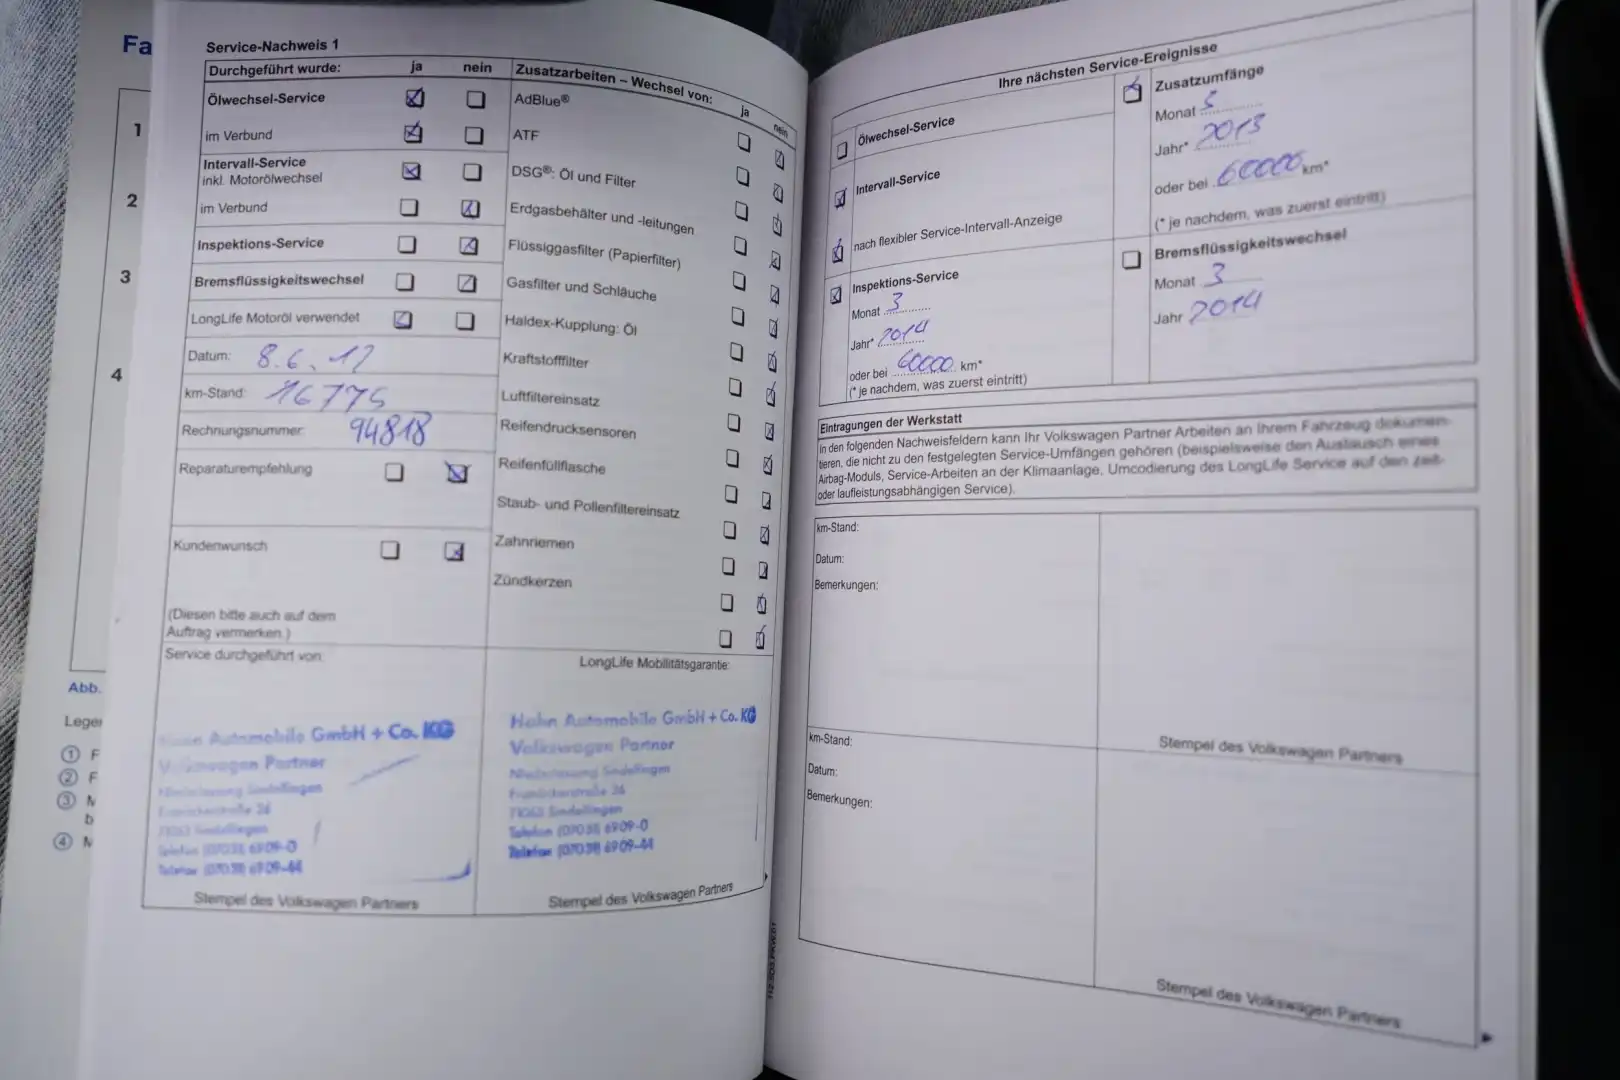 Fa
1
2
3
4
Abb.
Legen
① F
② F
③ M
b
④ M
Service-Nachweis 1
Durchgeführt wurde: ja nein
Ölwechsel-Service
im Verbund
Intervall-Service
inkl. Motorölwechsel
im Verbund
Inspektions-Service
Bremsflüssigkeitswechsel
LongLife Motoröl verwendet
Datum: 8.6.12
km-Stand: 16775
Rechnungsnummer: 94818
Reparaturempfehlung
Kundenwunsch
(Diesen bitte auch auf dem
Auftrag vermerken.)
Service durchgeführt von:
Hahn Automobile GmbH + Co. KG
Volkswagen Partner
Niederlassung Sindelfingen
71063 Sindelfingen
Telefon (07031) 6909-0
Telefax (07031) 6909-44
Stempel des Volkswagen Partners
Zusatzarbeiten – Wechsel von: ja nein
AdBlue®
ATF
DSG®: Öl und Filter
Erdgasbehälter und -leitungen
Flüssiggasfilter (Papierfilter)
Gasfilter und Schläuche
Haldex-Kupplung: Öl
Kraftstofffilter
Luftfiltereinsatz
Reifendrucksensoren
Reifenfüllflasche
Staub- und Pollenfiltereinsatz
Zahnriemen
Zündkerzen
LongLife Mobilitätsgarantie:
Hahn Automobile GmbH + Co. KG
Volkswagen Partner
Niederlassung Sindelfingen
71063 Sindelfingen
Telefon (07031) 6909-0
Telefax (07031) 6909-44
Stempel des Volkswagen Partners
Ihre nächsten Service-Ereignisse
Ölwechsel-Service
Intervall-Service
nach flexibler Service-Intervall-Anzeige
Inspektions-Service
Monat 3
Jahr* 2014
oder bei 60000 km*
(* je nachdem, was zuerst eintritt)
Zusatzumfänge
Monat 5
Jahr* 2013
oder bei 60000 km*
(* je nachdem, was zuerst eintritt)
Bremsflüssigkeitswechsel
Monat 3
Jahr 2014
Eintragungen der Werkstatt
In den folgenden Nachweisfeldern kann Ihr Volkswagen Partner Arbeiten an Ihrem Fahrzeug dokumen-
tieren, die nicht zu den festgelegten Service-Umfängen gehören (beispielsweise den Austausch eines
Airbag-Moduls, Service-Arbeiten an der Klimaanlage, Umcodierung des LongLife Service auf den zeit-
oder laufleistungsabhängigen Service).
km-Stand:
Datum:
Bemerkungen:
Stempel des Volkswagen Partners
km-Stand:
Datum:
Bemerkungen:
Stempel des Volkswagen Partners